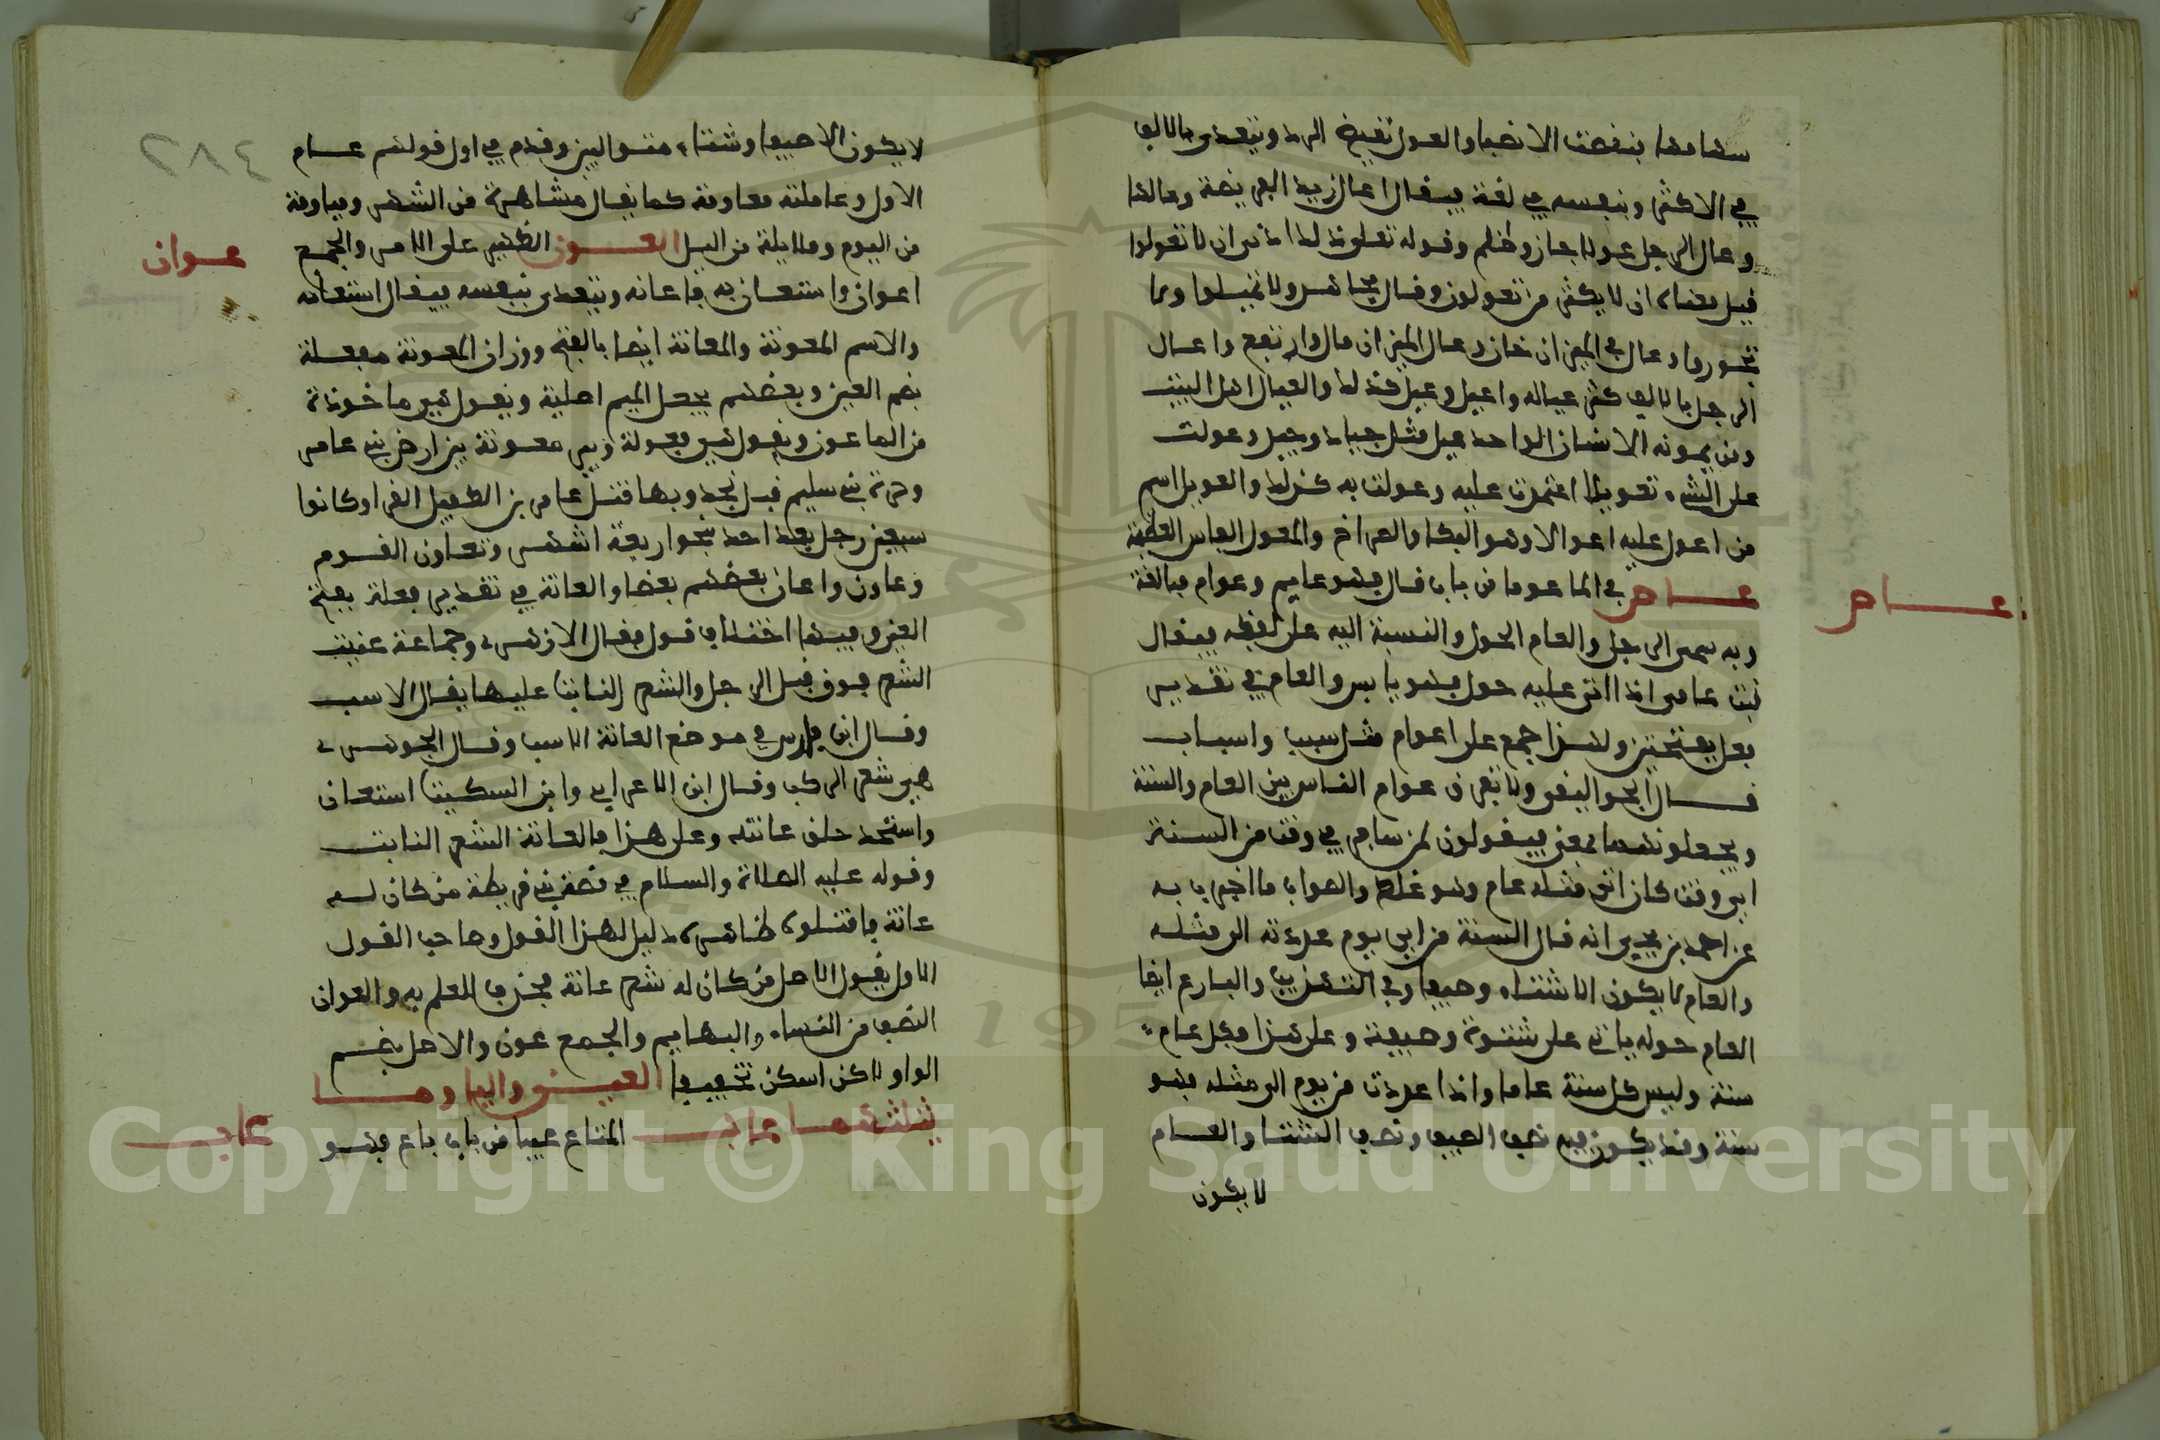 سهامها فنقصت الانصبا والعول نقيض الرد ويتعدى بالالف
في الاكثر وبنفسه في لغة فيقال اعال زيد الفريضة وعالها
وعال الرجل عولا جار وظلم وقوله تعلى ذلك ادنى ان لا تعولوا
قيل معناه ان لا يكثر من تعولون وقال مجاهد لا تميلوا ولا
تجوروا وعال في الميزان خان وعال الميزان مال وارتفع واعال
الرجل بالالف كثر عياله واعيل وعيل كذلك والعيال اهل البيت
ومن يمونه الانسان الواحد عيل مثل جياد وجيد وعولت
على الشيء تعويلا اعتمدت عليه وعولت به كذلك والعويل اسم
من اعول عليه اعوالا وهو البكا والصراخ والمعول الفاس العظيمة
عام في الما عوما من باب قال فهو عايم وعوام مبالغة
عام
وبه سمي الرجل والعام الحول والنسبة اليه على لفظه فيقال
نبت عامي اذا اتى عليه حول فهو يابس والعام في تقدير
فعل بفتحتين ولهذا جمع على اعوام مثل سبب واسباب
قال الجواليقي ولا تفرق عوام الناس بين العام والسنة
ويجعلونهما بمعنى فيقولون لمن سافر في وقت من السنة
اي وقت كان الى مثله عام وهو غلط والصواب ما اخبرت به
عن احمد بن يحيى انه قال السنة من اي يوم عددته الى مثله
والعام لا يكون الا شتاء وصيفا وفي التهذيب والبارع ايضا
العام حول ياتي على شتوة وصيفة وعلى هذا فكل عام
سنة وليس كل سنة عاما واذا عددت من يوم الى مثله فهو
سنة وقد يكون فيه نصف الصيف ونصف الشتا والعام
لا يكون
٤٨٢
لا يكون الا صيفا وشتاء متواليين وقدم في اول قولهم عام
الاول وعاملته معاومة كما يقال مشاهرة من الشهر ومياومة
من اليوم وملايلة من اليل العون الظهير على الامر والجمع
عوان
اعوان واستعان به فاعانه ويتعدى بنفسه فيقال استعانه
والاسم المعونة والمعانة ايضا بالفتح ووزان المعونة مفعلة
بضم العين وبعضهم يجعل الميم اصلية ويقول هي ماخوذة
من الماعون ويقول هي فعولة وبير معونة بين ارض بني عامر
وحرة بني سليم قبل نجد وبها قتل عامر بن الطفيل القرا وكانوا
سبعين رجل بعد احد بنحو اربعة اشهر وتعاون القوم
وعاون واعان بعضهم بعضا والعانة في تقدير فعلة بفتح
العين وفيها اختلاف قول فقال الازهري وجماعة منبت
الشعر فوق قبل الرجل والشعر النابت عليها يقال الاسب
وقال ابن فارس في موضع العانة الاسب وقال الجوهري
هي شعر الركب وقال ابن الاعرابي وابن السكيت استعان
واستحد حلق عانته وعلى هذا فالعانة الشعر النابت
وقوله عليه الصلاة والسلام في قصة بني قريظة من كان له
عانة فاقتلوه ظاهره دليل لهذا القول وصاحب القول
الاول يقول الاصل من كان له شعر عانة فحذف للعلم به والعوان
النصف من النساء والبهايم والجمع عون والاصل بضم
الواو لاكن اسكن تخفيفا العين واليا وما
يثلثهما عاب المتاع عيبا من باب باع فهو
عاب
Copyright © King Saud University
195